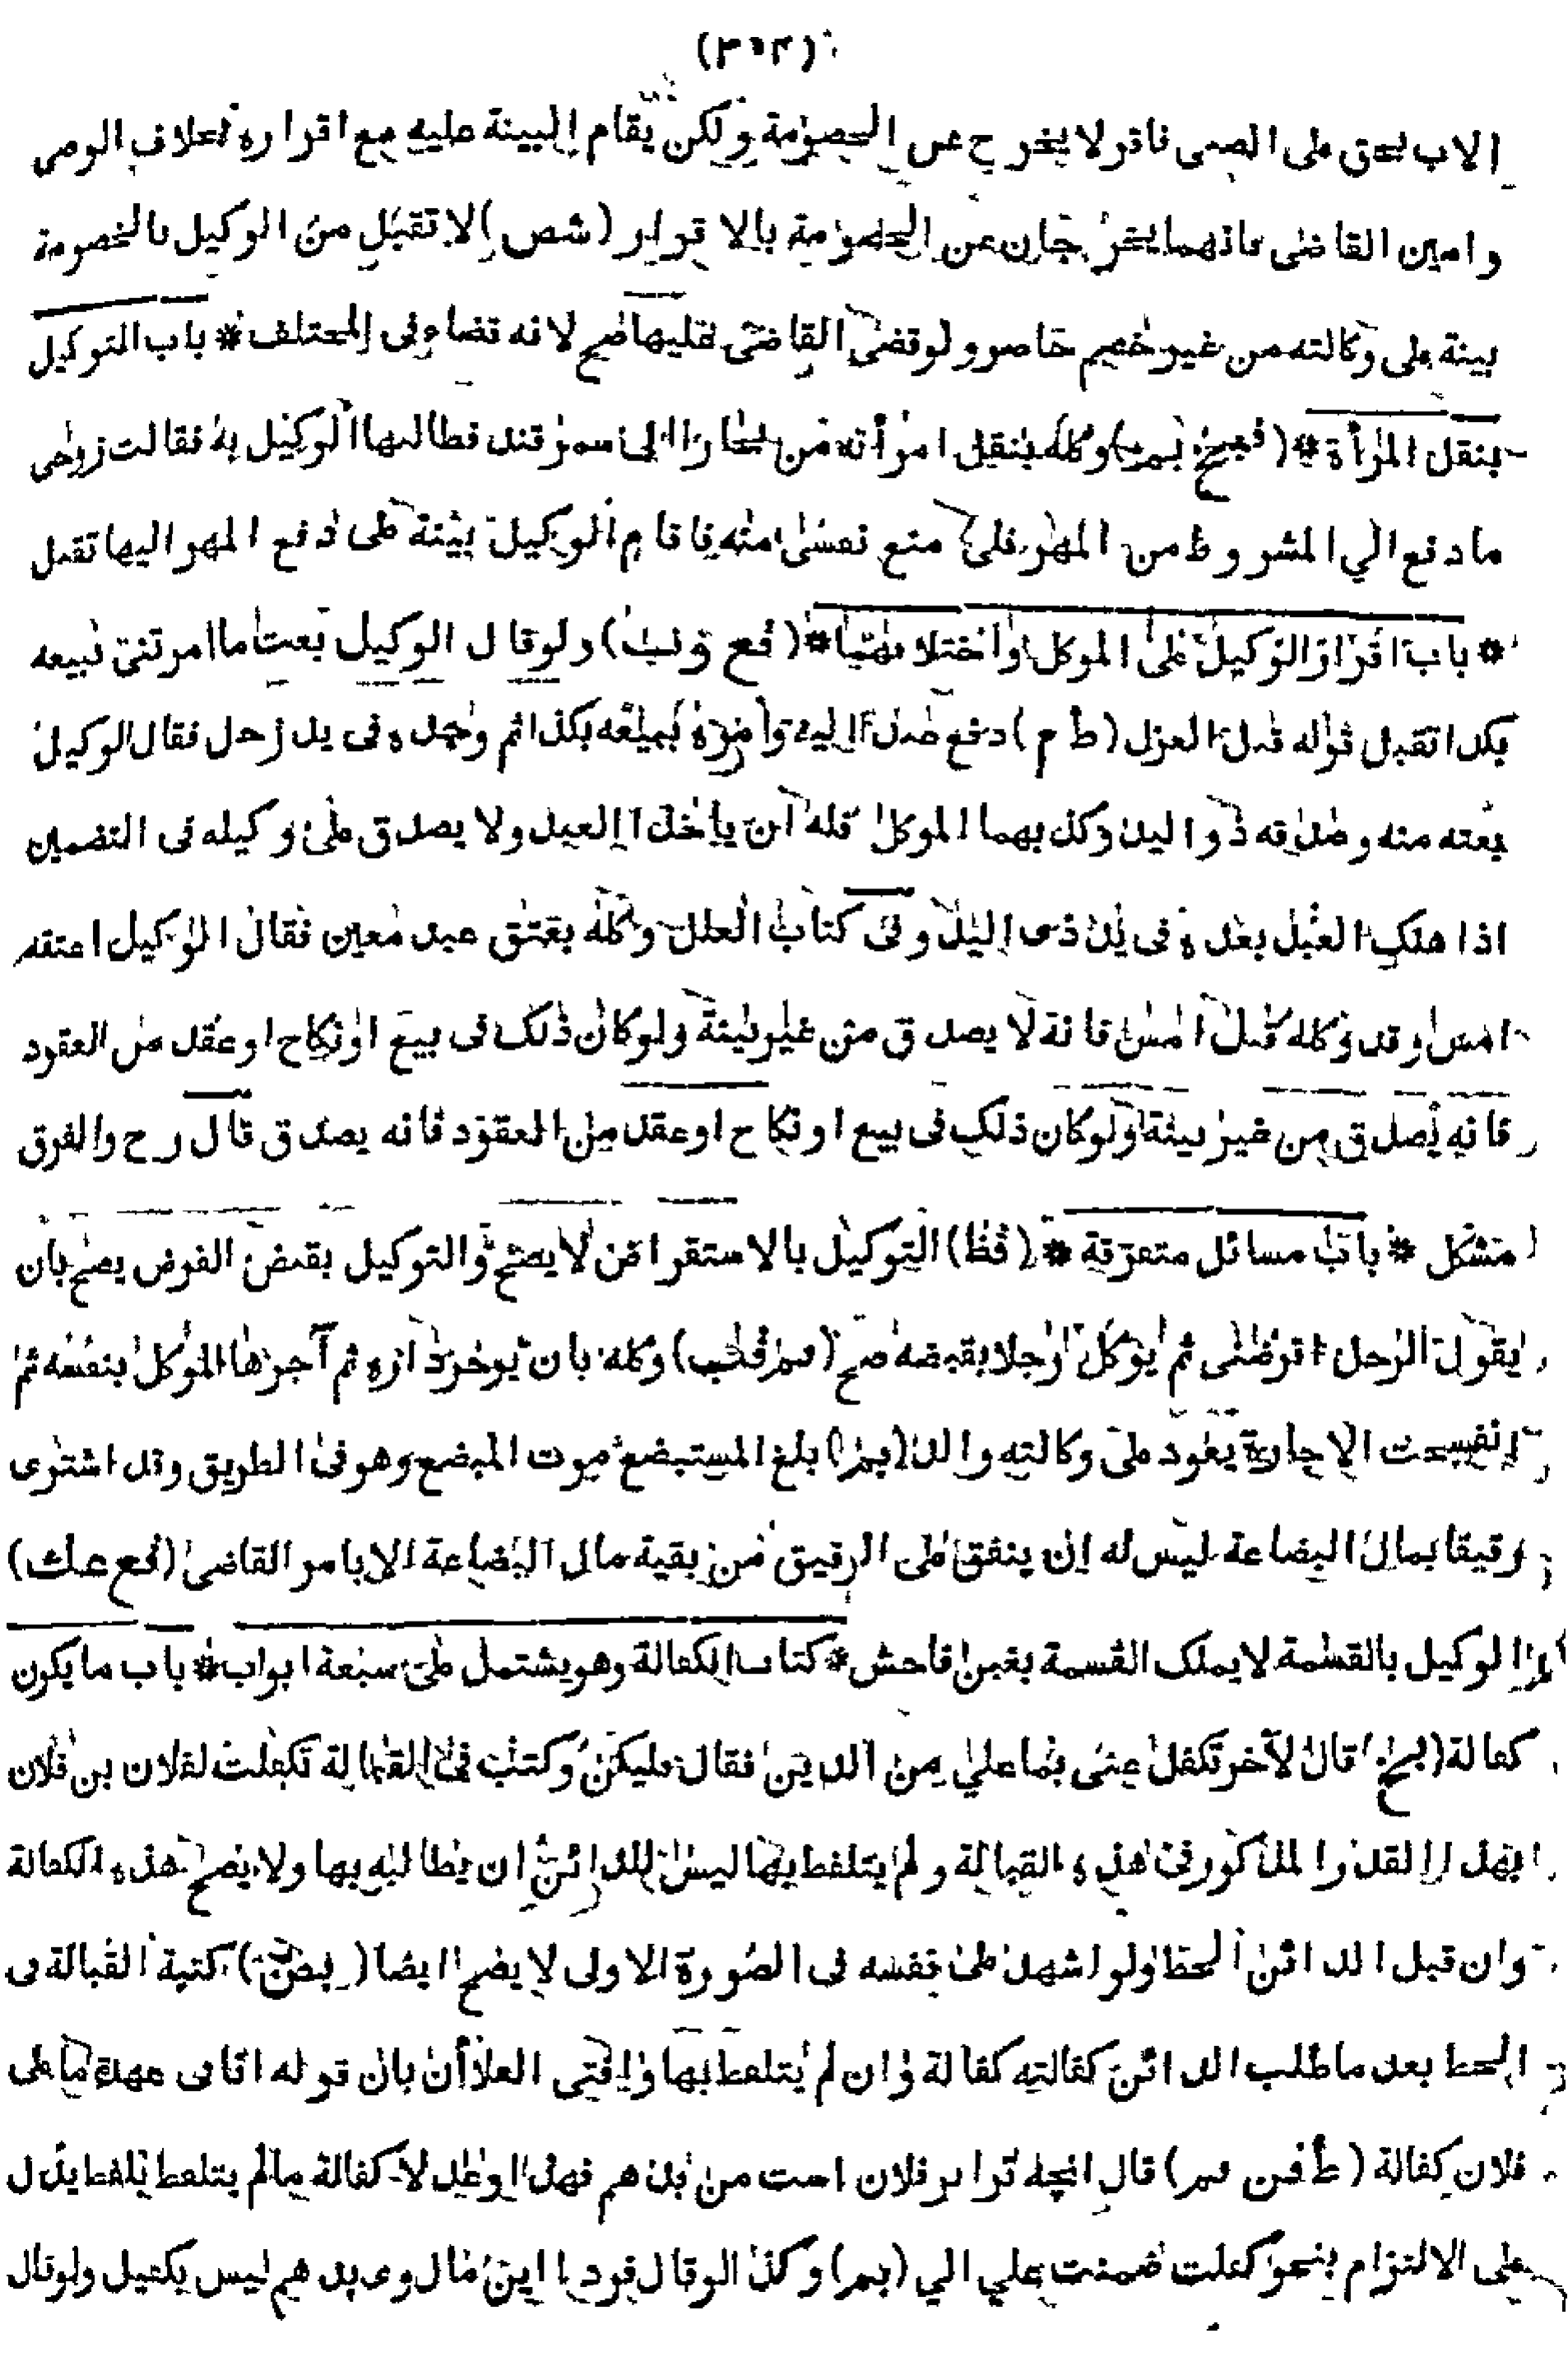 (٣٠٣)
الاب بحق على الصبى فاقر لا يخرج عن الخصومة ولكن يقام البينة عليه مع اقراره بخلاف الوصى
وامين القاضى فانهما يخرجان عن الخصومة بالاقرار (شص) لا تقبل من الوكيل بالخصومة
بينة على وكالته من غير خصم حاضر ولو قضى القاضى عليها صح لانه قضاء فى المختلف * باب التوكيل
بنقل المرأة * (فبخ بم) وكله بنقل امرأته من بخارا الى سمرقند فطالبها الوكيل به فقالت زوجى
ما دفع الي المشروط من المهر فلى منع نفسى منه فاقام الوكيل بينة على دفع المهر اليها تقبل
* باب اقرار الوكيل على الموكل واختلافهما * (فع) ولو قال الوكيل بعت ما امرتنى ببيعه
بكذا تقبل قوله قبل العزل (ط م) دفع عبدا اليه وامره ببيعه بكذا ثم وجده فى يد رجل فقال الوكيل
بعته منه وصدقه ذو اليد وكذبهما الموكل فله ان ياخذ العبد ولا يصدق على وكيله فى التضمين
اذا هلك العبد بعده فى يد ذى اليد وفى كتاب العلل وكله بعتق عبد معين فقال الوكيل اعتقه
امس وقد وكله قبل امس فانه لا يصدق من غير بينة ولو كان ذلك فى بيع او نكاح او عقد من العقود
فانه يصدق من غير بينة ولو كان ذلك فى بيع او نكاح او عقد من العقود فانه يصدق قال رح والفرق
مشكل * باب مسائل متفرقة * (قظ) التوكيل بالاستقراض لا يصح والتوكيل بقبض القرض يصح بان
يقول الرجل اقرضنى ثم يوكل رجلا بقبضه صح وكله بان يوجر داره ثم آجرها الموكل بنفسه ثم
انفسخت الاجارة يعود على وكالته (بم) بلغ المستبضع موت المبضع وهو فى الطريق وقد اشترى
رقيقا بمال البضاعة ليس له ان ينفق على الرقيق من بقية مال البضاعة الا بامر القاضى (فع عك)
الوكيل بالقسمة لا يملك القسمة بغبن فاحش * كتاب الكفالة وهو يشتمل على سبعة ابواب * باب ما يكون
كفالة (بخ) قال لآخر تكفل عنى بما علي من الدين فقال مليكن وكتب فى القبالة تكفلت لفلان بن فلان
بهذا القدر المذكور فى هذه القبالة ولم يتلفظ بها ليس للدائن ان يطالبه بها ولا يصح هذه الكفالة
وان قبل الدائن الخط ولو اشهد على نفسه فى الصورة الاولى لا يصح ايضا كتبة القبالة فى
الخط بعد ما طلب الدائن كفالته كفالة وان لم يتلفظ بها وافتى بان قوله انا فى عهدة ما على
فلان كفالة قال انچه ترا بر فلان است من بدهم فهذا وعد لا كفالة ما لم يتلفظ بلفظ يدل
على الالتزام بنحو كفلت ضمنت علي الي (بم) وكذا لو قال ليس بكفيل ولو قال